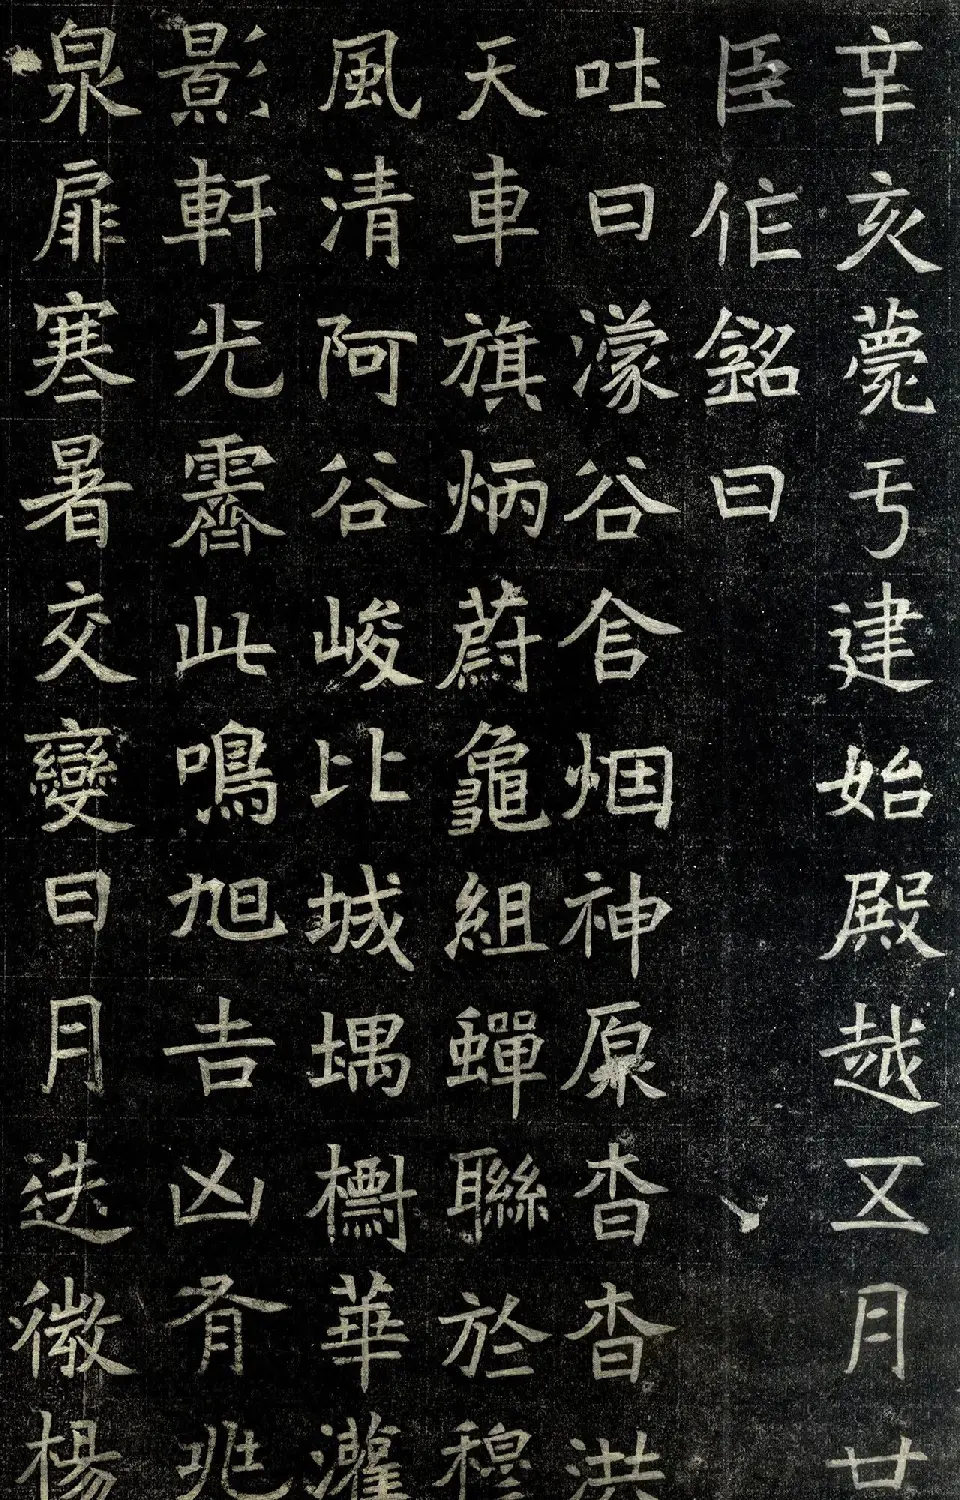 辛亥薨于建始殿越五月廿
臣作銘曰
吐曰濛谷含烟神原杳杳洪
天車旗炳蔚龜組蟬聯於穆
風清阿谷峻比城堣櫹華灌
影軒光霽此鳴旭吉凶有兆
泉扉寒暑交變日月迭微楊